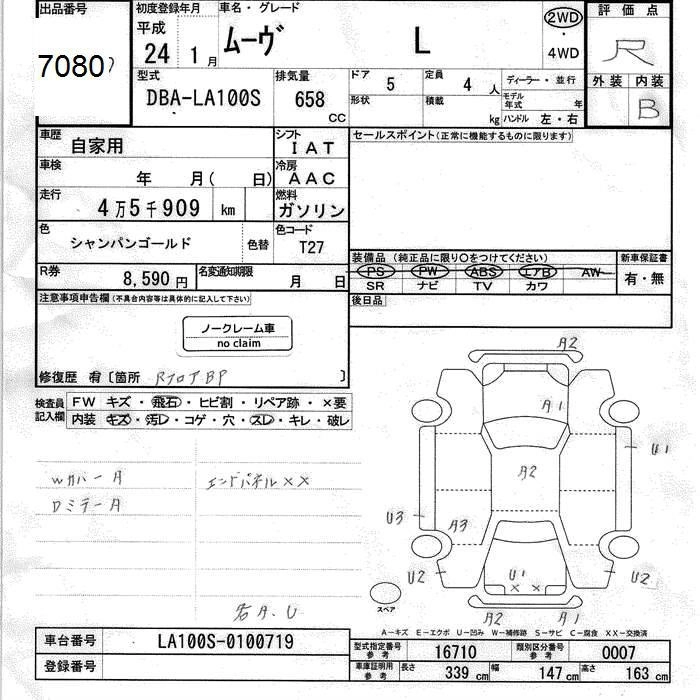 出品番号
7080
初度登録年月
平成
24 1月
車名・グレード
ムーヴ L
2WD
・
4WD
評価点
R
外装 内装
B
型式
DBA-LA100S
排気量
658
CC
ドア 5
定員 4人
形状
積載 kg
ディーラー・並行
モデル年式 年
ハンドル 左・右
車歴
自家用
シフト
IAT
車検
年 月( 日)
冷房
AAC
走行
4万5千909 km
燃料
ガソリン
色
シャンパンゴールド
色替
色コード
T27
R券
8,590円
名変通知期限
月 日
セールスポイント(正常に機能するものに限ります)
装備品(純正品に限り○をつけてください)
PS PW ABS エアB AW
SR ナビ TV カワ
新車保証書
有・無
後日品
注意事項申告欄(不具合内容等は具体的に記入して下さい)
ノークレーム車
no claim
修復歴 有 〔箇所 RフロアBP 〕
検査員記入欄
FW キズ・飛石・ヒビ割・リペア跡・×要
内装 キズ・汚レ・コゲ・穴・スレ・キレ・破レ
WカバーA
DミラーA
エンドパネル××
各A.U
A2
A1
U1
A2
U3
A3
U2
U2
U1
××
A2
A1
スペア
A−キズ E−エクボ U−凹み W−補修跡 S−サビ C−腐食 XX−交換済
車台番号
LA100S-0100719
登録番号
型式指定番号
参考
16710
類別区分番号
参考
0007
車庫証明用
参考
長さ 339cm
幅 147cm
高さ 163cm